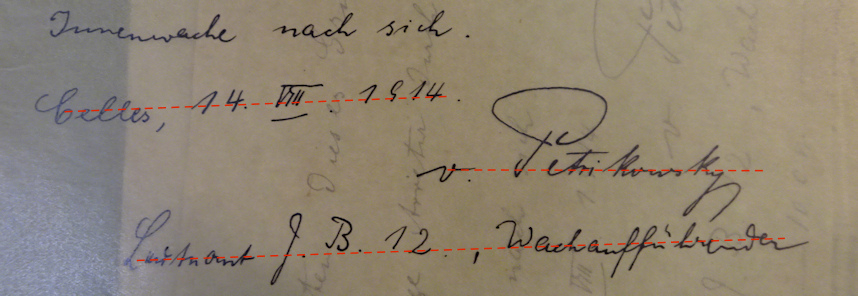 Innenwache nach sich.
Celles, 14. VIII. 1914.
v. Petrikowsky
Leutnant J. B. 12., Wachaufführender